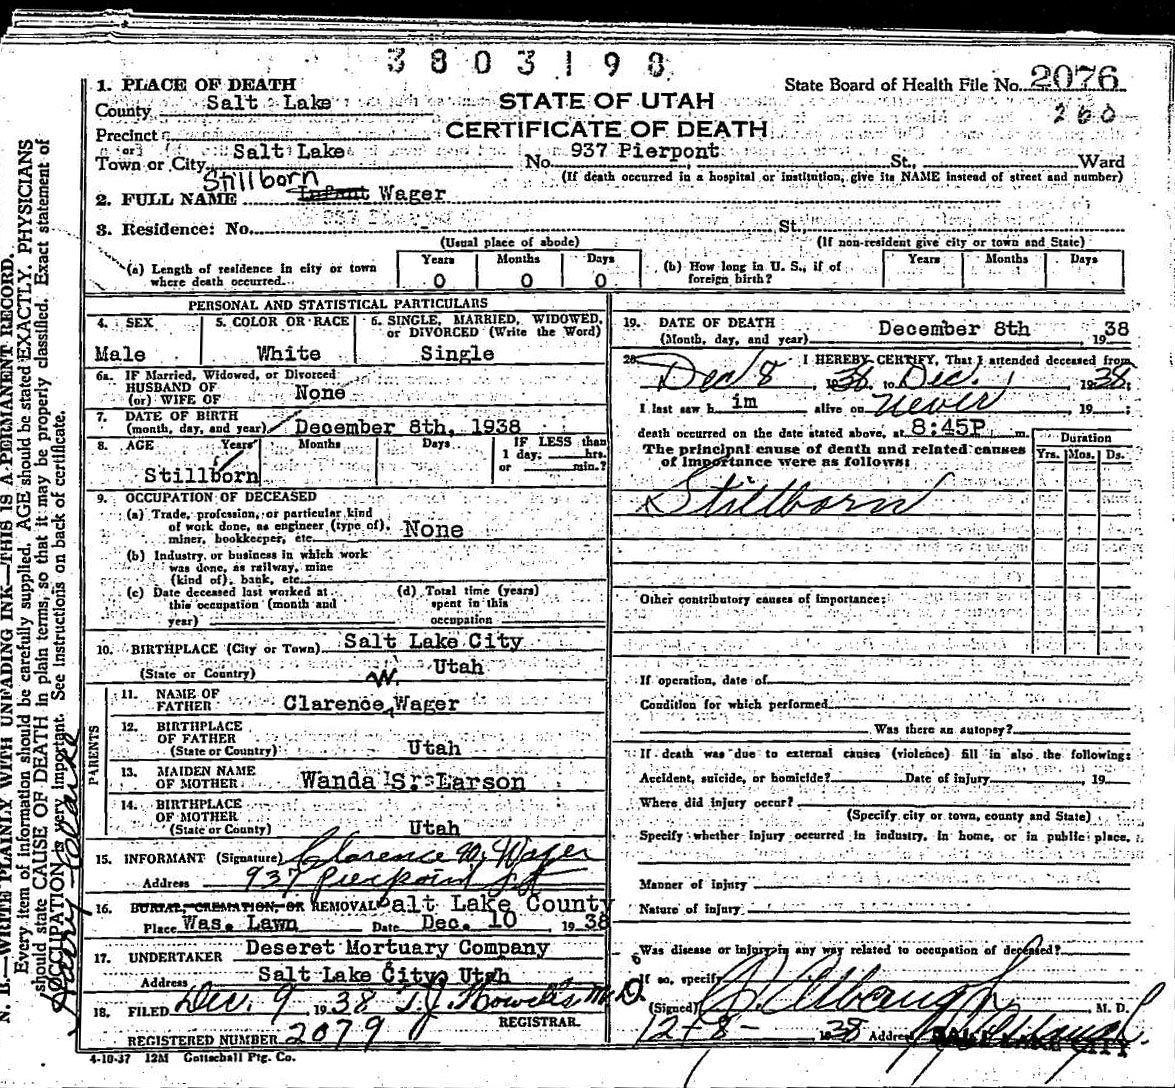 3803198
1. PLACE OF DEATH
State Board of Health File No. 2076
260
County Salt Lake
STATE OF UTAH
Precinct
CERTIFICATE OF DEATH
or
Town or City Salt Lake No. 937 Pierpont St., Ward
(If death occurred in a hospital or institution, give its NAME instead of street and number)
Stillborn
2. FULL NAME Infant Wager
3. Residence: No. St.
(Usual place of abode) (If non-resident give city or town and State)
(a) Length of residence in city or town where death occurred. Years 0 Months 0 Days 0
(b) How long in U. S., if of foreign birth? Years Months Days
PERSONAL AND STATISTICAL PARTICULARS
4. SEX Male
5. COLOR OR RACE White
6. SINGLE, MARRIED, WIDOWED, or DIVORCED (Write the Word) Single
6a. IF Married, Widowed, or Divorced
HUSBAND OF
(or) WIFE OF None
7. DATE OF BIRTH
(month, day, and year) December 8th, 1938
8. AGE Years Months Days IF LESS than 1 day, hrs. or min.?
Stillborn
9. OCCUPATION OF DECEASED
(a) Trade, profession, or particular kind
of work done, as engineer (type of),
miner, bookkeeper, etc. None
(b) Industry or business in which work
was done, as railway, mine
(kind of), bank, etc.
(c) Date deceased last worked at
this occupation (month and
year)
(d) Total time (years)
spent in this
occupation
10. BIRTHPLACE (City or Town) Salt Lake City
(State or Country) Utah
PARENTS
11. NAME OF
FATHER Clarence W. Wager
12. BIRTHPLACE
OF FATHER
(State or County) Utah
13. MAIDEN NAME
OF MOTHER Wanda S. Larson
14. BIRTHPLACE
OF MOTHER
(State or County) Utah
15. INFORMANT (Signature) Clarence W. Wager
Address 937 Pierpoint St
16. BURIAL, CREMATION, OR REMOVAL Salt Lake County
Place Was. Lawn Date Dec. 10 1938
17. UNDERTAKER Deseret Mortuary Company
Address Salt Lake City, Utah
18. FILED Dec. 9 1938 T.J. Howells, M.D.
REGISTRAR
REGISTERED NUMBER 2079
4-10-37 12M Gottschall Ptg. Co.
19. DATE OF DEATH
(Month, day, and year) December 8th 1938
20. I HEREBY CERTIFY, That I attended deceased from
Dec 8 1938, to Dec. 1938;
I last saw h im alive on Never 19 ;
death occurred on the date stated above, at 8:45P m.
The principal cause of death and related causes
of importance were as follows:
Duration
Yrs. Mos. Ds.
Stillborn
Other contributory causes of importance:
If operation, date of
Condition for which performed
Was there an autopsy?
If death was due to external causes (violence) fill in also the following:
Accident, suicide, or homicide? Date of injury 19
Where did injury occur?
(Specify city or town, county and State)
Specify whether injury occurred in industry, in home, or in public place.
Manner of injury
Nature of injury
Was disease or injury in any way related to occupation of deceased?
If so, specify
(Signed) M. D.
12-8- 1938 Address SALT LAKE CITY
N. B.—WRITE PLAINLY WITH UNFADING INK—THIS IS A PERMANENT RECORD.
Every item of information should be carefully supplied. AGE should be stated EXACTLY. PHYSICIANS
should state CAUSE OF DEATH in plain terms, so that it may be properly classified. Exact statement of
OCCUPATION is very important. See instructions on back of certificate.